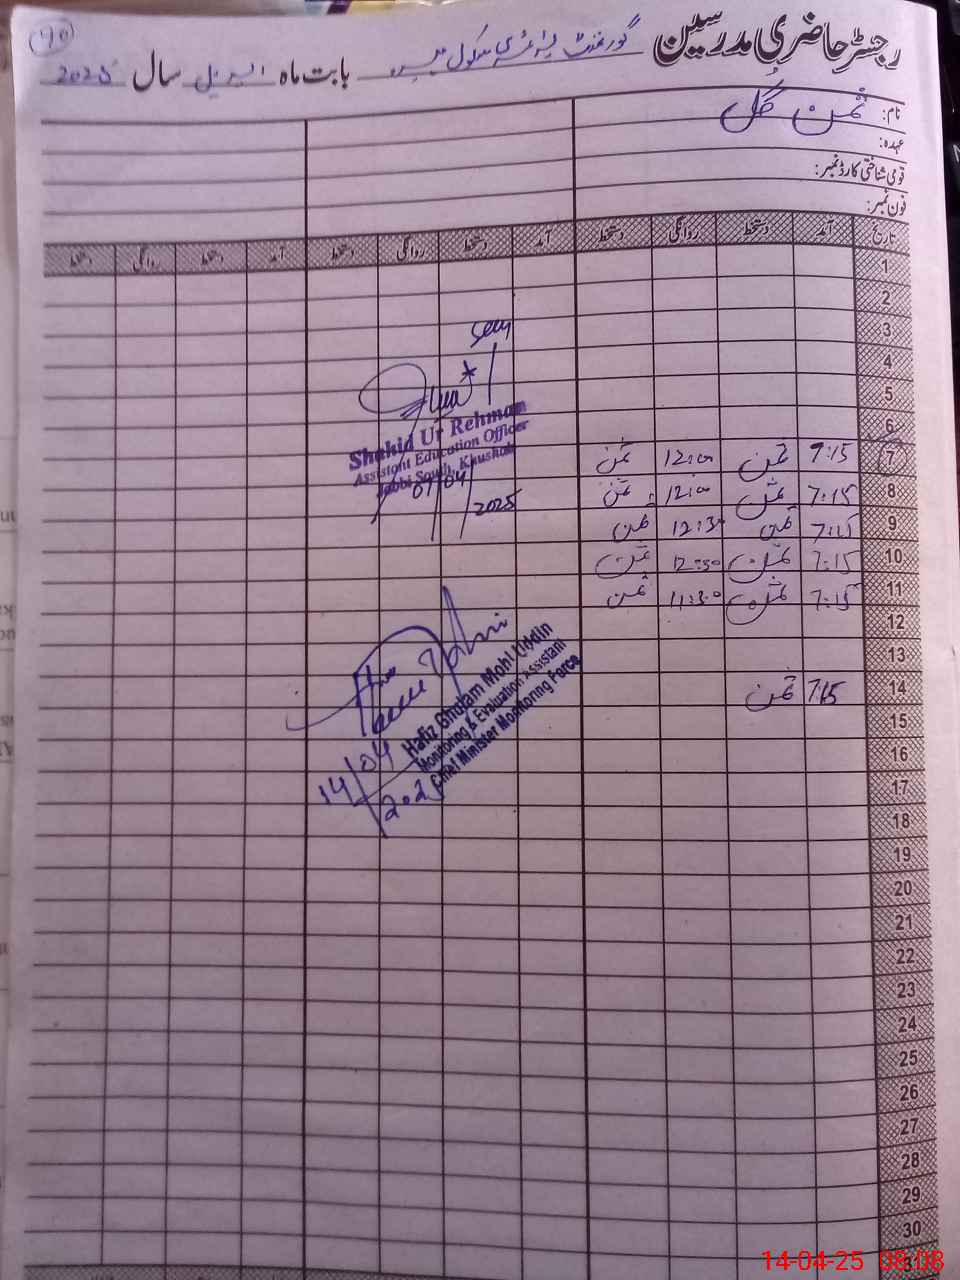 40
رجسٹر حاضری مدرسین گورنمنٹ پرائمری سکول بابت ماہ اپریل سال 2025
نام: ثمن گل
عہدہ:
قومی شناختی کارڈ نمبر:
فون نمبر:
تاریخ آمد دستخط روانگی دستخط آمد دستخط روانگی دستخط آمد دستخط روانگی دستخط
1
2
3
4
5
6
7 7:15 ثمن 12:00 ثمن
8 7:15 ثمن 12:00 ثمن
9 7:15 ثمن 12:30 ثمن
10 7:15 ثمن 12:30 ثمن
11 7:15 ثمن 11:30 ثمن
12
13
14 7:15 ثمن
15
16
17
18
19
20
21
22
23
24
25
26
27
28
29
30
31
Seen
Shahid Ur Rehman
Assistant Education Officer
Jabbi South, Khushab
07/04/2025
Hafiz Ghulam Mohi Uddin
Monitoring & Evaluation Assistant
Chief Minister Monitoring Force
14/04/2025
14-04-25 08:08